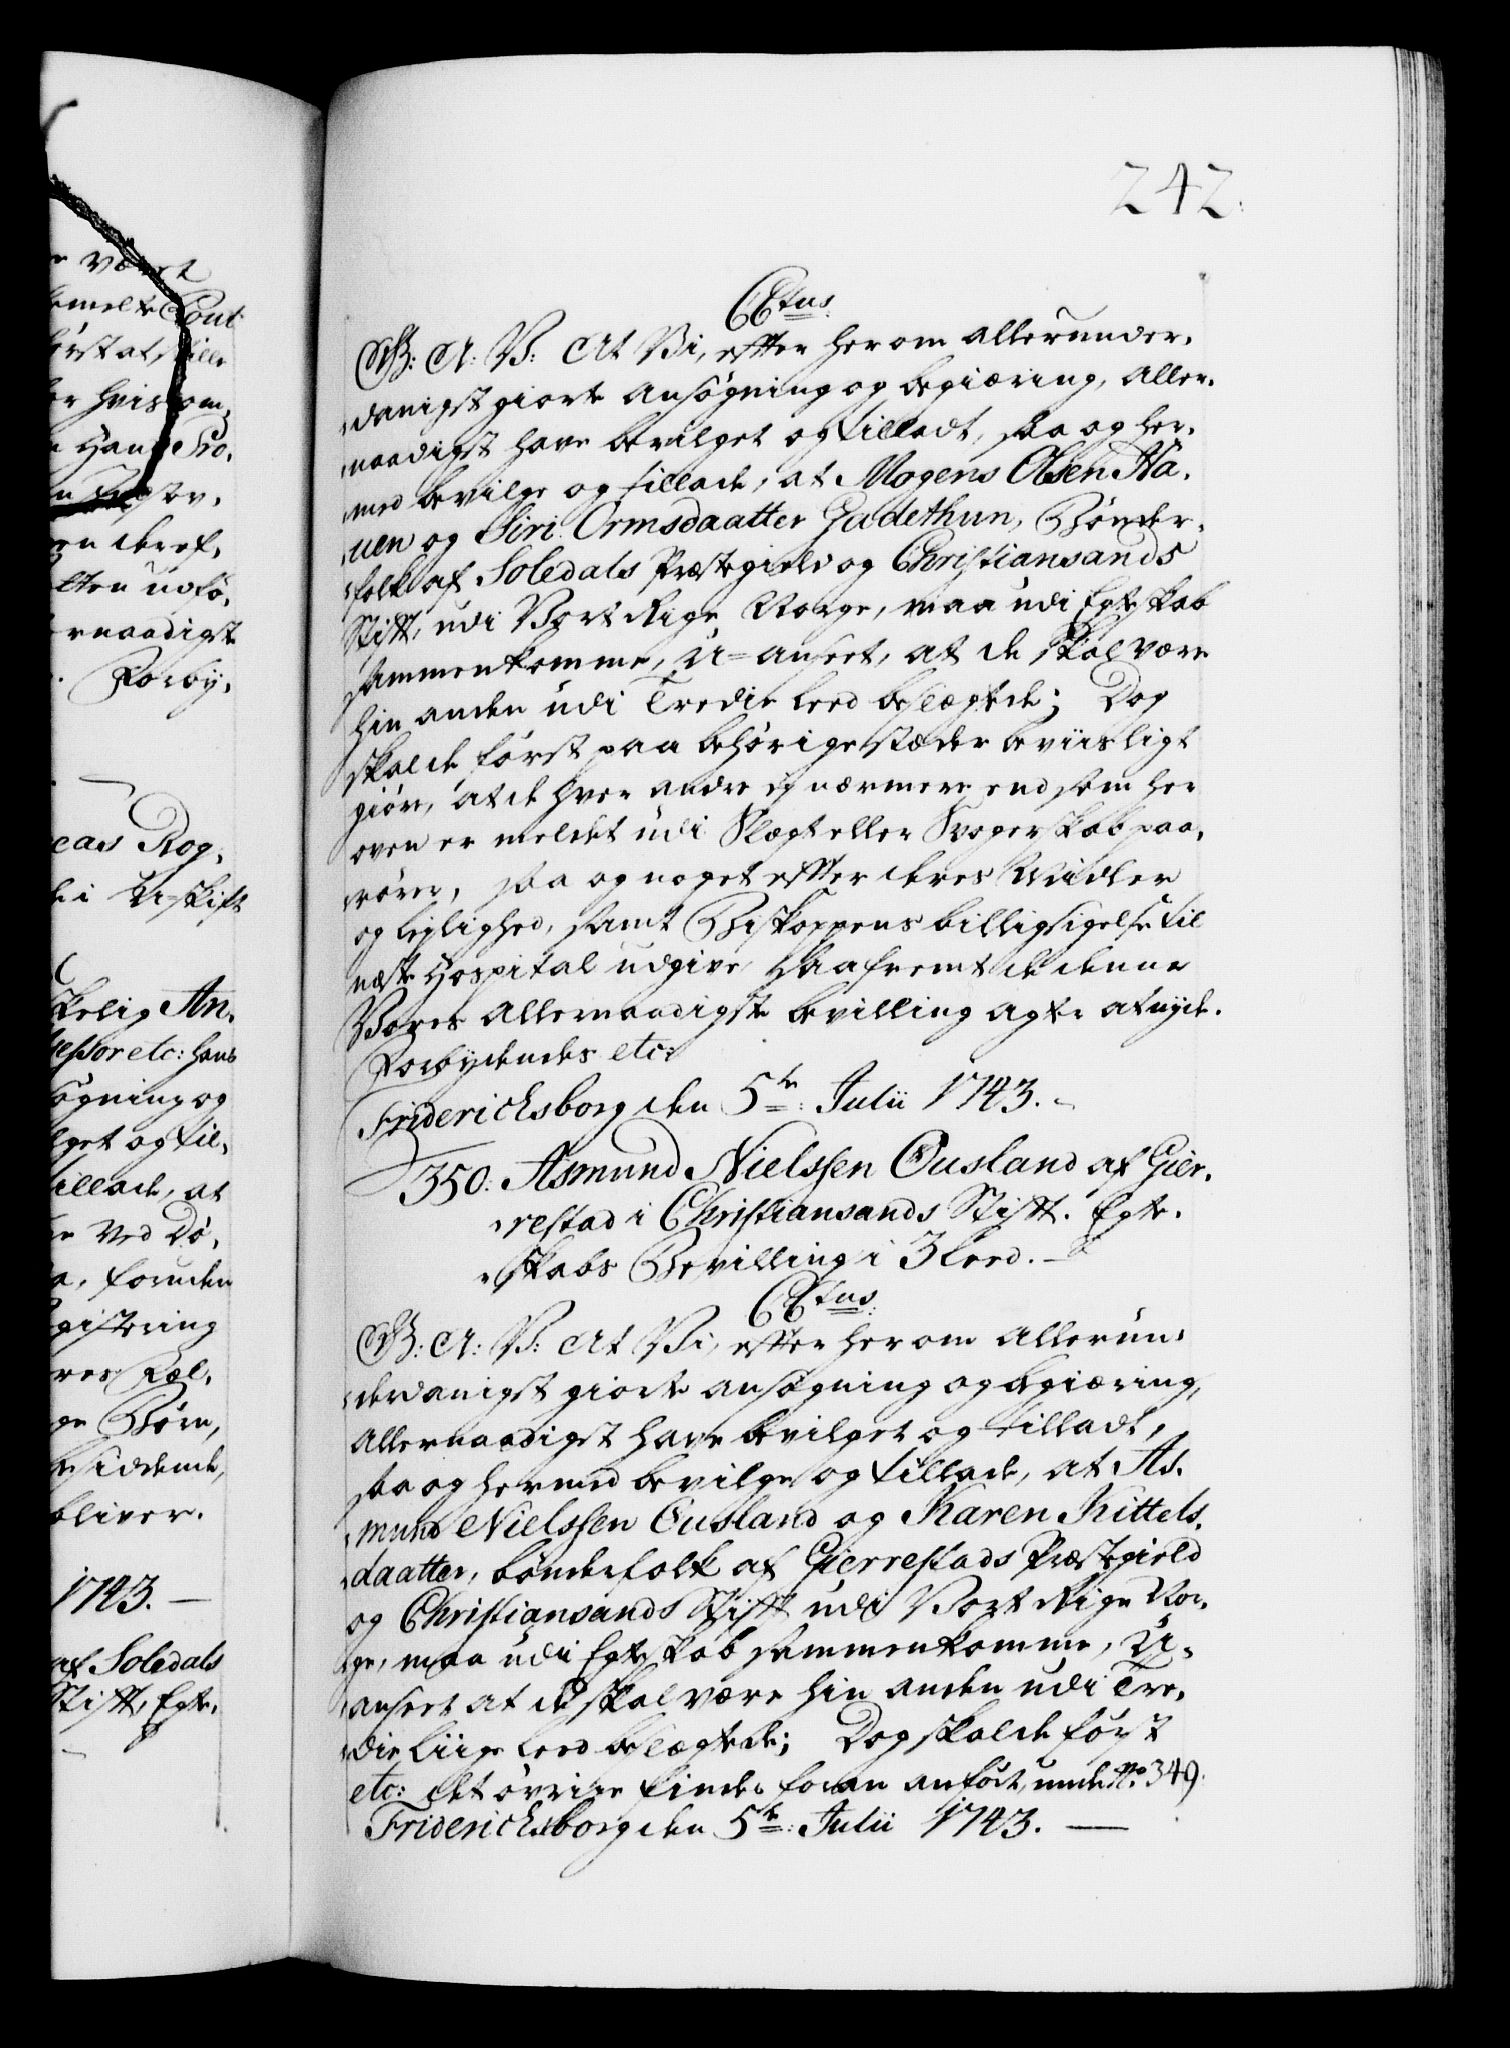 242.
C6tus
G: A: V: At Vi, effter herom allerunder-
danigst giorte ansøgning og begiæring, aller-
naadigst have bevilget og tilladt, saa og her-
med bevilge og tillade, at Mogens Olsen Ha-
uen og Siri Ormsdaatter Gadethun, Bønder-
folk af Soledals Præstegield og Christiansands
Stift, udi Vort Rige Norge, maa udi Egteskab
sammenkomme, U-anseet, at de skal være
hin anden udi Tredie Leed beslægtede; Dog
skal de først paa behørige stæder beviisligt
giøre, at de hver andre ej nærmere end som her
oven er meldet udi Slægt eller Svogerskab paa-
rører, saa og noget effter deres Midler
og lejlighed, samt Biskoppens billigsigelse til
næste Hospital udgive saafremt de denne
Vores allernaadigste bevilling agter at nyde.
Forbydendes etc:
Friderichsborg den 5te: Julii 1743.
350: Asmund Nielssen Ousland af Gier-
restad i Christiansands Stift. Egte-
skabs Bevilling i 3 Leed.
C6tus:
G: A: V: At Vi, effter herom Allerun-
derdanigst giorte ansøgning og begiæring,
Allernaadigst have bevilget og tilladt,
saa og hermed bevilge og tillade, at As-
mund Nielssen Ousland og Karen Kittels-
daatter, bønderfolk af Gierrestads Præstegield
og Christiansands Stift udi Vort Rige Nor-
ge, maa udi Egteskab sammenkomme, U-
anseet at de skal være hin anden udi Tre-
die Liige Leed beslægtede; Dog skal de først
etc: det øvrige findes foran anført under No 349.
Friderichsborg den 5te: Julii 1743.